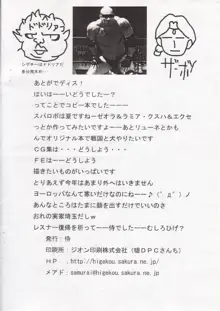 ドドリア
ザーボン
あとがでディス！
はいはーーいどうでしたー？
ってことでコピー本でしたーーー
スパロボは空ですねーゼオラ&ラミア・クスハ&エクセ
っとか作ってみたいですよーーあとリューネとかも
んでオリジナル本で戦国と犬やりたいです
CG集は・・・どうしよう・・・
FEはーーどうしよう
描きたいものがいっぱいです
とりあえず今年はあまり外へはいきません
ヨーロッパなんて寒いだけなのにねーー♪（´д｀）ノ
あんなところはたまに顔を出すだけでいいのさ
おれの実家埼玉だしw
レスナー復帰を祈ってーー侍でしたーーむしろひげ？
発行：侍
印刷所：ジオン印刷株式会社（嘘DPCさんち）
HP ： http://higekou.sakura.ne.jp/
メアド：samurai@higekou.sakura.ne.jp